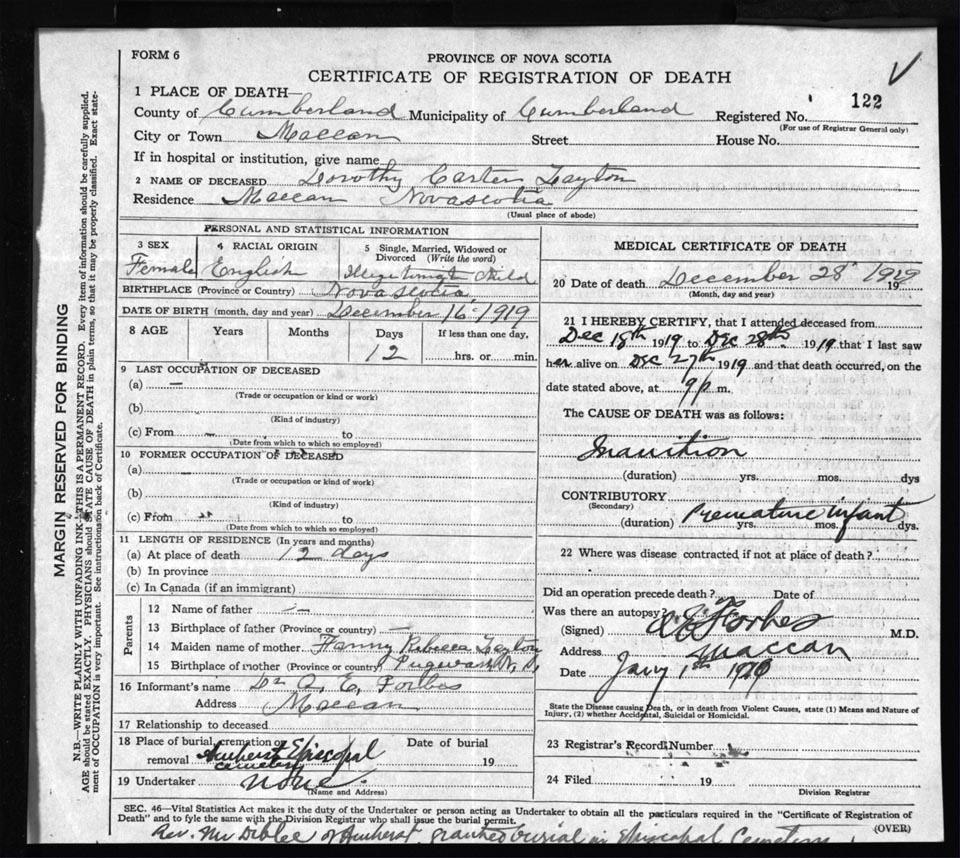 FORM 6
PROVINCE OF NOVA SCOTIA
CERTIFICATE OF REGISTRATION OF DEATH
1 PLACE OF DEATH—
County of Cumberland Municipality of Cumberland Registered No. 122
(For use of Registrar General only)
City or Town Maccan Street House No.
If in hospital or institution, give name
2 NAME OF DECEASED Dorothy Carter Layton
Residence Maccan Novascotia
(Usual place of abode)
PERSONAL AND STATISTICAL INFORMATION
3 SEX 4 RACIAL ORIGIN 5 Single, Married, Widowed or Divorced (Write the word)
Female English Illegitimate Child
BIRTHPLACE (Province or Country) Nova Scotia
DATE OF BIRTH (month, day and year) December 16 1919
8 AGE Years Months Days If less than one day,
12 hrs. or min.
9 LAST OCCUPATION OF DECEASED
(a) —
(Trade or occupation or kind or work)
(b)
(Kind of industry)
(c) From — to
(Date from which to which so employed)
10 FORMER OCCUPATION OF DECEASED
(a) —
(Trade or occupation or kind of work)
(b)
(Kind of industry)
(c) From to
(Date from which to which so employed)
11 LENGTH OF RESIDENCE (In years and months)
(a) At place of death 12 days
(b) In province
(c) In Canada (if an immigrant)
Parents
12 Name of father —
13 Birthplace of father (Province or country) —
14 Maiden name of mother Fanny Rebecca Layton
15 Birthplace of mother (Province or country) Pugwash N. S.
16 Informant's name Dr E. Forbes
Address Maccan
17 Relationship to deceased
18 Place of burial, cremation or removal Amherst Episcopal cemetery Date of burial 19
19 Undertaker none
(Name and Address)
MEDICAL CERTIFICATE OF DEATH
20 Date of death December 28 1919
(Month, day and year)
21 I HEREBY CERTIFY, that I attended deceased from
Dec 18th 1919 to Dec 28th 1919 that I last saw
her alive on Dec 27th 1919 and that death occurred, on the
date stated above, at 9 p m.
The CAUSE OF DEATH was as follows:
Inanition
(duration) yrs. mos. dys
CONTRIBUTORY
(Secondary)
Premature infant
(duration) yrs. mos. dys.
22 Where was disease contracted if not at place of death?
Did an operation precede death? Date of
Was there an autopsy?
(Signed) E Forbes M.D.
Address Maccan
Date Jany 1st 19
State the Disease causing Death, or in death from Violent Causes, state (1) Means and Nature of
Injury, (2) whether Accidental, Suicidal or Homicidal.
23 Registrar's Record Number
24 Filed 19
Division Registrar
SEC. 46—Vital Statistics Act makes it the duty of the Undertaker or person acting as Undertaker to obtain all the particulars required in the "Certificate of Registration of
Death" and to fyle the same with the Division Registrar who shall issue the burial permit.
(OVER)
Rev. Mr Diblee of Amherst, granted burial in Episcopal Cemetery
MARGIN RESERVED FOR BINDING
N.B.—WRITE PLAINLY WITH UNFADING INK—THIS IS A PERMANENT RECORD. Every item of information should be carefully supplied.
AGE should be stated EXACTLY. PHYSICIANS should STATE CAUSE OF DEATH in plain terms, so that it may be properly classified. Exact state-
ment of OCCUPATION is very important. See instructions on back of Certificate.